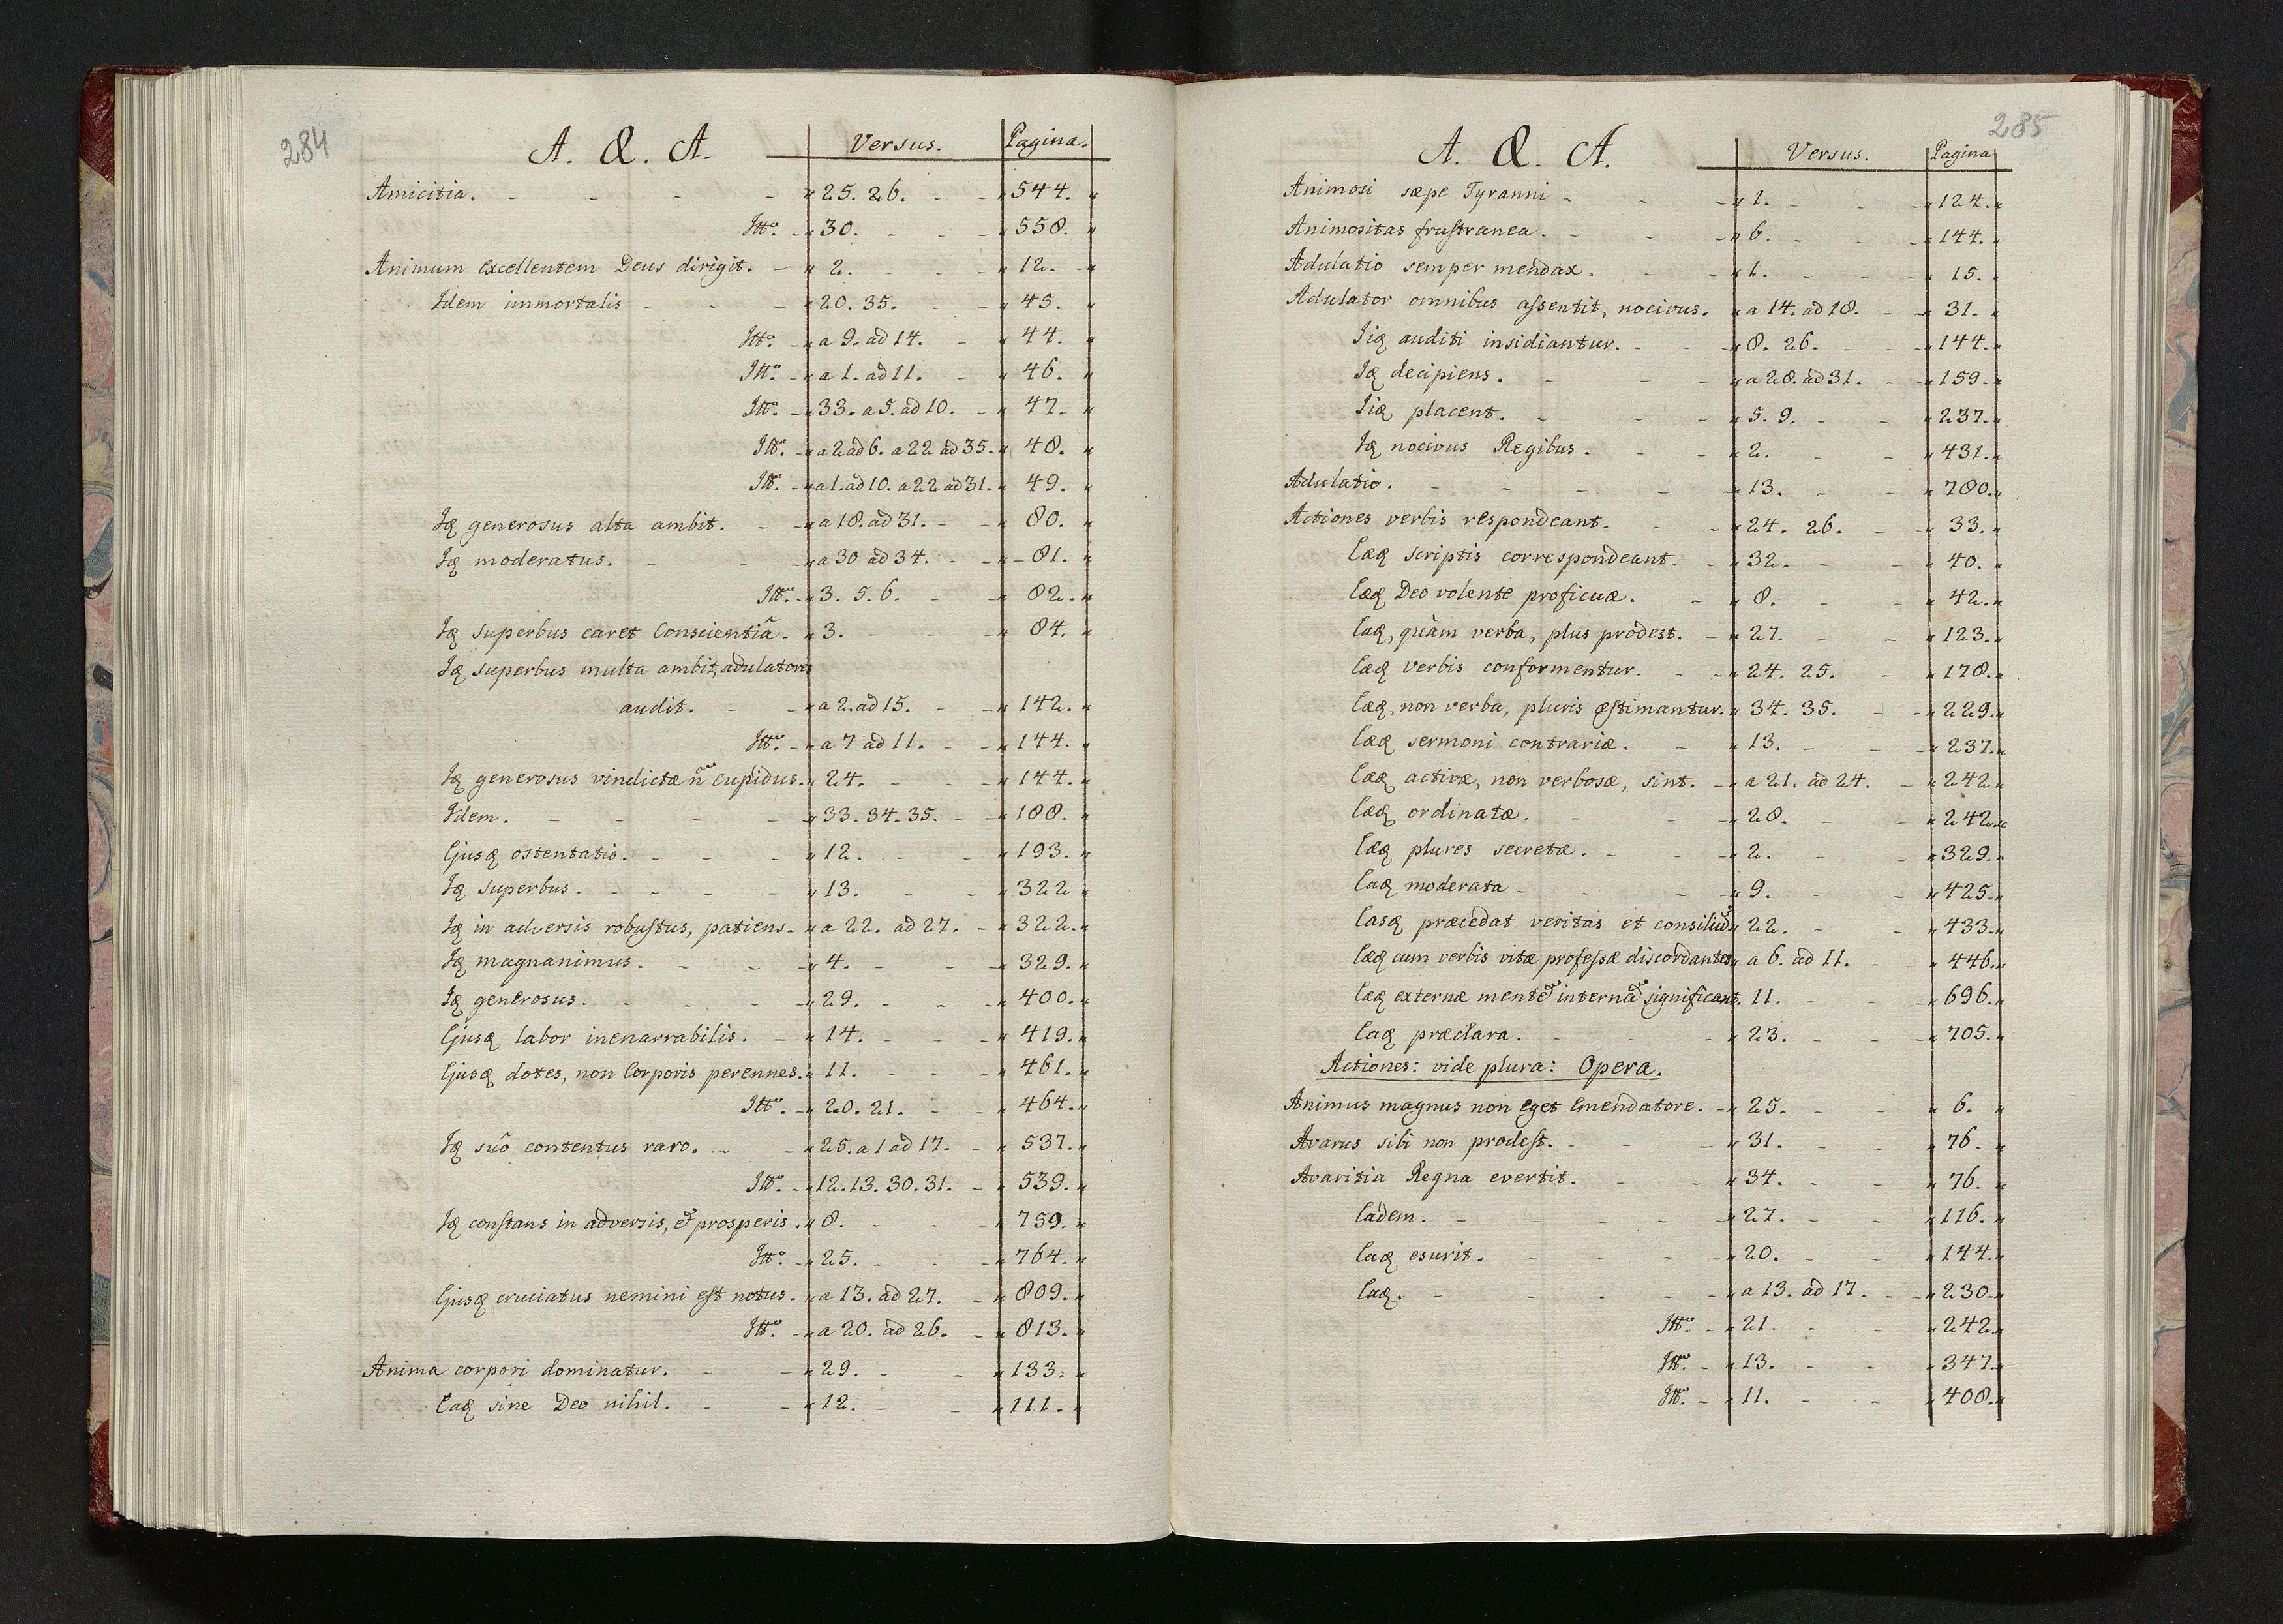 284
A. & A. Versus. Pagina.
Amicitia. - - - - „ 25. 26. - - „ 544. „
Itt°. - „ 30. - - - „ 558. „
Animum Excellentem Deus dirigit. - „ 2. - - - „ 12. - „
Idem immortalis - - - „ 20. 35. - - „ 45. „
Itt°. - „ a 9. ad 14. - „ 44. „
Itt°. - „ a 1. ad 11. - „ 46. „
Itt°. - „ 33. a 5. ad 10. - „ 47. „
Itt°. - „ a 2 ad 6. a 22 ad 35. „ 48. „
Itt°. - „ a 1. ad 10. a 22 ad 31. „ 49. „
Iq generosus alta ambit. - - „ a 18. ad 31. - - „ 80. „
Iq moderatus. - - - „ a 30 ad 34. - - „ 81. „
Itt°. - „ 3. 5. 6. - - „ 82. „
Iq superbus caret Conscientiâ. - „ 3. - - - „ 84. „
Iq superbus multa ambit, adulatores
audit. - - „ a 2. ad 15. - - „ 142. „
Itt°. - „ a 7 ad 11. - - „ 144. „
Iq generosus vindictæ ñ Cupidus. „ 24. - - - „ 144. „
Idem. - - - - - „ 33. 34. 35. - - „ 188. „
Ejusq ostentatio. - - - - „ 12. - - „ 193. „
Iq superbus. - - - - - „ 13. - - - „ 322 „
Iq in adversis robustus, patiens. - „ a 22. ad 27. - „ 322. „
Iq magnanimus. - - - - „ 4. - - - „ 329. „
Iq generosus. - - - - „ 29. - - - „ 400. „
Ejusq labor inenarrabilis. - - „ 14. - - - „ 419. „
Ejusq dotes, non Corporis perennes. „ 11. - - - „ 461. „
Itt°. - „ 20. 21. - - „ 464. „
Iq suô contentus raro. - - - „ 25. a 1 ad 17. - „ 537. „
Itt°. - „ 12. 13. 30. 31. - „ 539. „
Iq constans in adversis, et prosperis. „ 8. - - - „ 759. „
Itt°. - „ 25. - - - „ 764. „
Ejusq cruciatus nemini est notus. - „ a 13. ad 27. - „ 809. „
Itt°. - „ a 20. ad 26. - „ 813. „
Anima corpori dominatur. - - „ 29. - - „ 133. „
Eaq sine Deo nihil. - - „ 12. - - „ 111. „
285
A. & A. Versus. Pagina
Animosi sæpe Tyranni - - - „ 1. - - - „ 124. „
Animositas frustranea. - - - „ 6. - - - „ 144. „
Adulatio semper mendax. - - - „ 1. - - - „ 15. „
Adulator omnibus assentit, nocivus. - „ a 14. ad 18. - „ 31. „
Iiq auditi insidiantur. - - - „ 8. 26. - - „ 144. „
Iq decipiens. - - - „ a 28. ad 31. - „ 159. „
Iiq placent. - - - „ 5. 9. - - „ 237. „
Iq nocivus Regibus. - - - „ 2. - - „ 431. „
Adulatio. - - - - - „ 13. - - „ 780. „
Actiones verbis respondeant. - - „ 24. 26. - „ 33. „
Eæq scriptis correspondeant. - „ 32. - - „ 40. „
Eæq Deo volente proficuæ. - „ 8. - - „ 42. „
Eaq, quàm verba, plus prodest. - „ 27. - - „ 123. „
Eæq verbis conformentur. - - „ 24. 25. - „ 178. „
Eæq, non verba, pluris æstimantur. „ 34. 35. - - „ 229. „
Eæq sermoni contrariæ. - - „ 13. - - - „ 237. „
Eæq activæ, non verbosæ, sint. - „ a 21. ad 24. - „ 242 „
Eæq ordinatæ. - - - „ 28. - - „ 242. „
Eæq plures secretæ. - - - „ 2. - - „ 329. „
Eaq moderata - - - „ 9. - - „ 425. „
Easq præcedat veritas et consiliũ „ 22. - - „ 433. „
Eæq cum verbis vitæ professæ discordantes „ a 6. ad 11. - „ 446. „
Eæq externæ mentẽ internã significant. 11. - - „ 696. „
Eaq præclara. - - - „ 23. - - „ 705. „
Actiones: vide plura: Opera.
Animus magnus non Eget Emendatore. - „ 25. - - „ 6. „
Avarus sibi non prodest. - - - „ 31. - - „ 76. „
Avaritia Regna evertit. - - - „ 34. - - „ 76. „
Eadem. - - - - - „ 27. - - „ 116. „
Eaq esurit. - - - - „ 20. - - „ 144. „
Eaq. - - - - - „ a 13. ad 17. - - „ 230. „
Itt°. - „ 21. - - „ 242. „
Itt°. - „ 13. - - „ 347. „
Itt°. - „ 11. - - „ 408. „